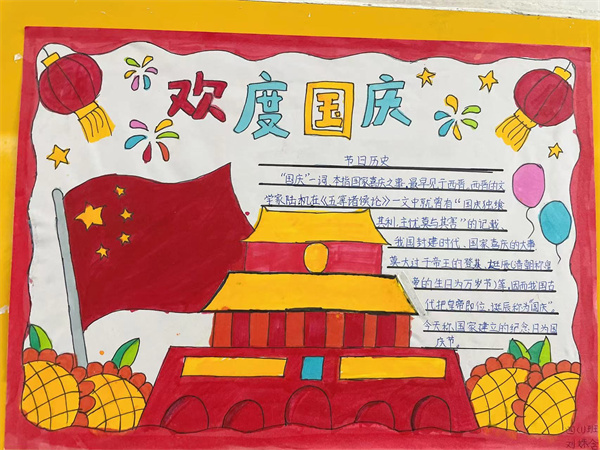 欢度国庆
节日历史
"国庆"一词,本指国家喜庆之事,最早见于西晋。西晋的文
学家陆机在《五等诸侯论》一文中就曾有"国庆独飨
其利,主忧莫与其害"的记载、
我国封建时代、国家喜庆的大事
莫大过于帝王的登基、诞辰(清朝称皇
帝的生日为万岁节)等,因而我国古
代把皇帝即位、诞辰称为"国庆"。
今天称,国家建立的纪念日为国
庆节。